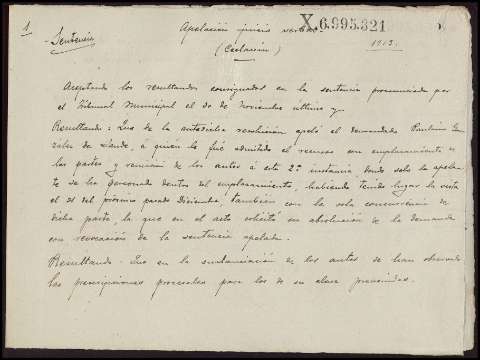 1
X.6.995.321
Sentencia
Apelacion juicio verbal
(Coclusion)
1913.
Aceptando los resultandos consignados en la sentencia pronunciada por
el Tribunal Municipal el de Noviembre último y.
Resultando: Que de la antedicha resolución apeló el demandado Paulino
de á quien le fué admitido el recurso con emplazamiento de
las partes y remision de los autos á esta 2ª instancia, donde solo la apelan-
te se ha personado dentro del emplazamiento, habiendo tenido lugar la vista
el 31 del próximo pasado Diciembre, tambien con la sola concurrencia de
dicha parte, la que en el acto solicitó su absolución de la demanda
con revocación de la sentencia apelada.
Resultando. Que en la sustanciación de los autos se han observado
las prescripciones procesales para los de su clase prevenidas.